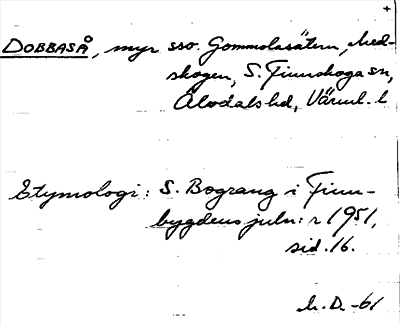 DOBBASÅ, myr sso. Gommolasätern, Med-
skogen, S. Finnskoga sn,
Älvdals hd, Värml. l
Etymologi: S. Bograng i Finn-
bygdens juln:r 1951,
sid. 16.
h. D. -61